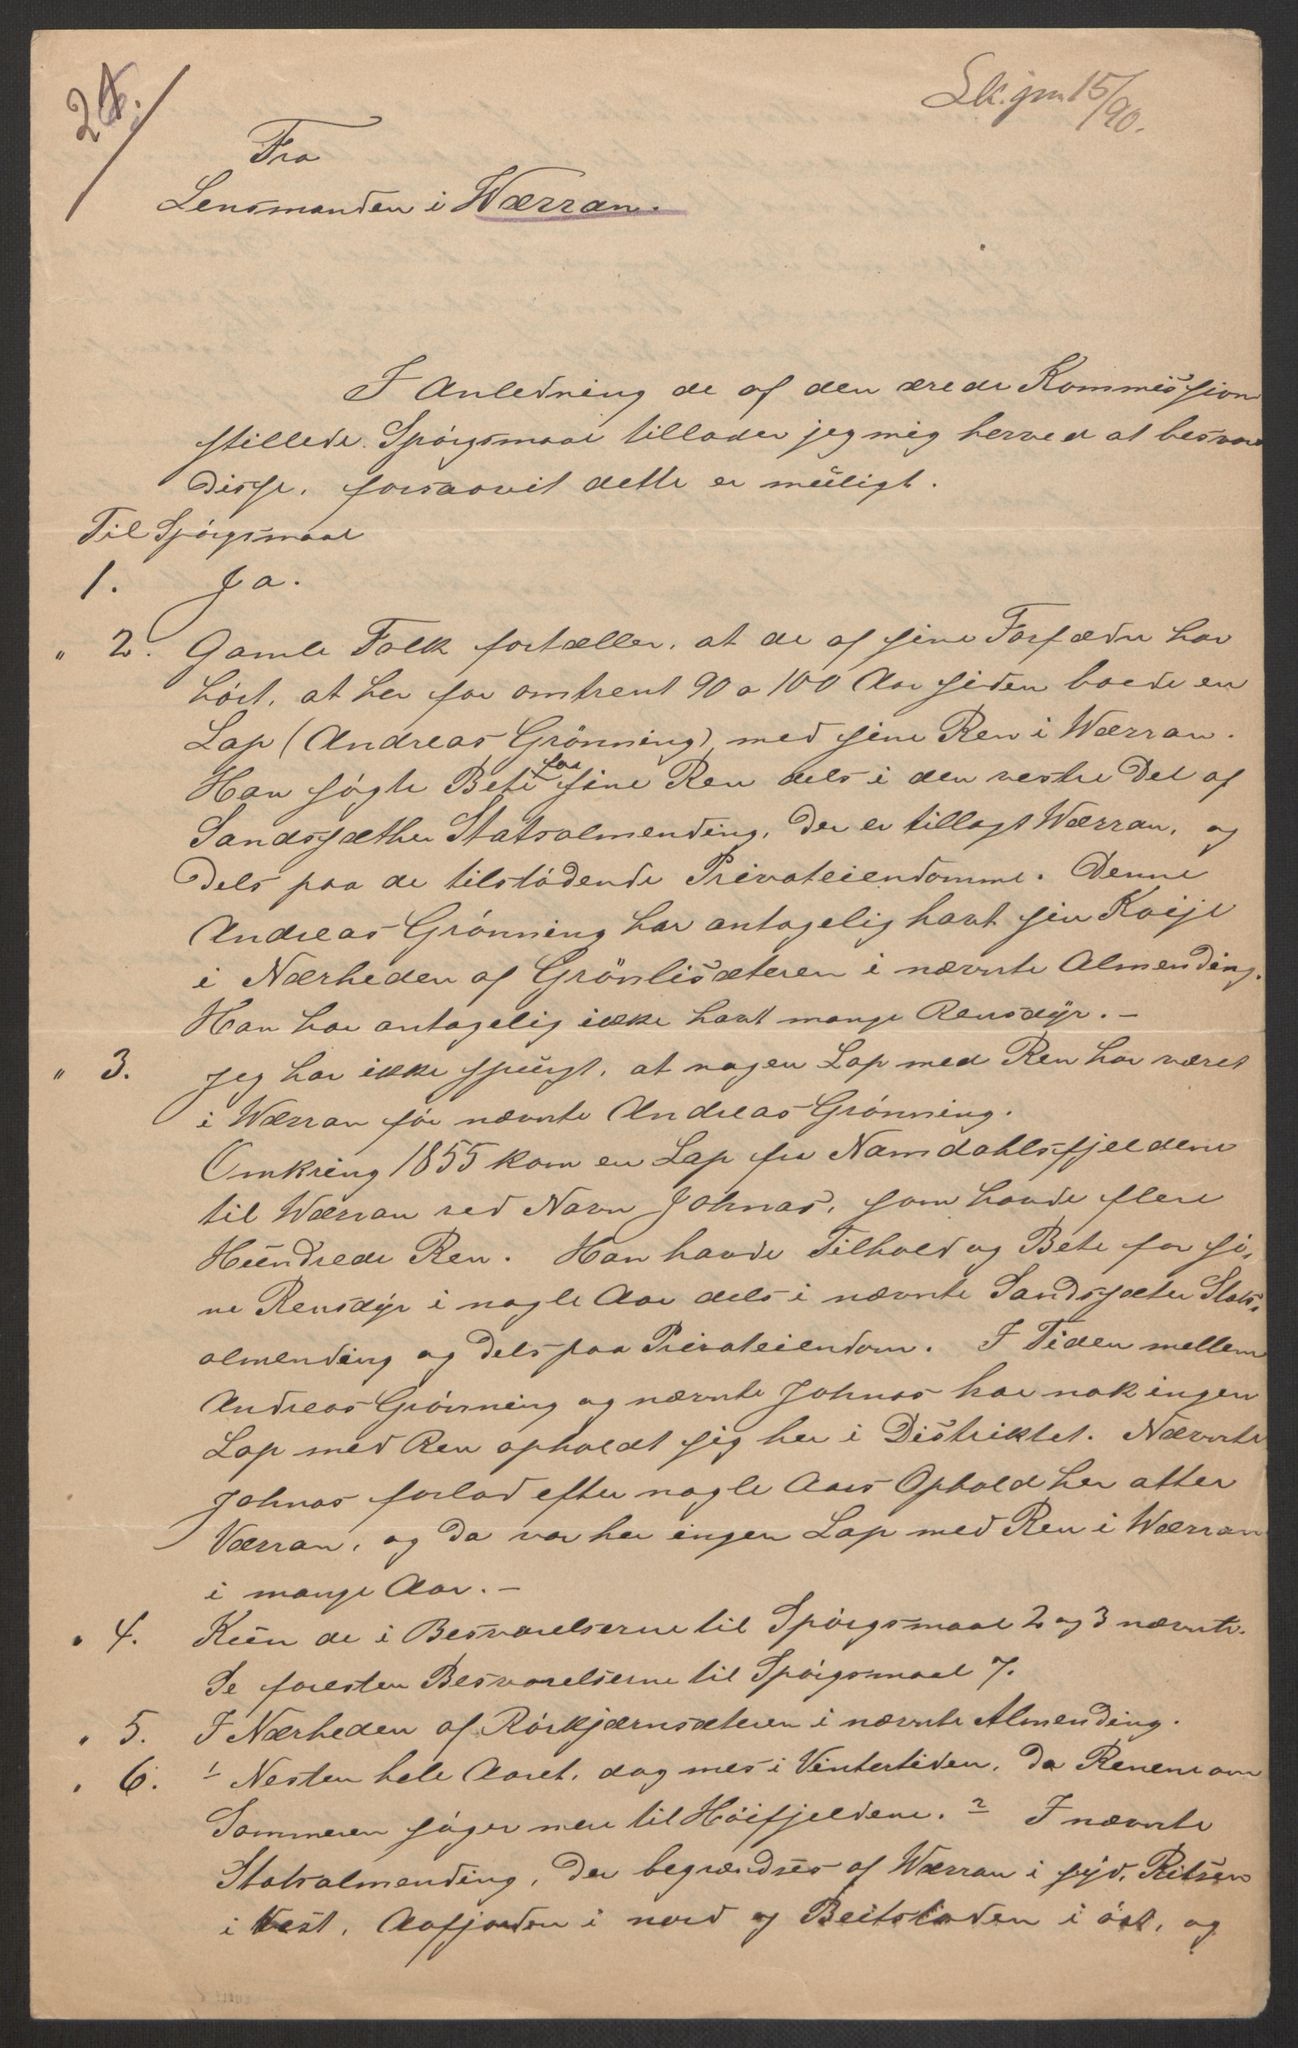 Lk. jnr 15/90.
Fra
Lensmanden i Wærran.
I Anledning de af den ærede Kommission
stillede Spörgsmaal tillader jeg mig herved at besvare
disse, forsaavit dette er muligt.
Til Spörgsmaal
1. Ja.
" 2. Gamle Folk fortæller, at de af sine Forfædre har
hört, at her for omtrent 90 a 100 Aar siden boede en
Lap (Andreas Grönning) med sine Ren i Wærran.
Han sögte Bete for sine Ren dels i den vestre Del af
Sandssæther Statsalmending, der er tillagt Wærran, og
dels paa de tilstödende Privateiendomme. Denne
Andreas Grönning har antagelig havt sin Koije
i Nærheden af Grönlisæteren i nævnte Almending.
Han har antagelig ikke havt mange Rensdyr. –
" 3. Jeg har ikke spurgt, at nogen Lap med Ren har været
i Wærran för nævnte Andreas Grönning.
Omkring 1855 kom en Lap fra Namdahlsfjeldene
til Wærran ved Navn Johnas, som havde flere
Hundrede Ren. Han havde Tilhold og Bete for si,
ne Rensdyr i nogle Aar dels i nævnte Sandssæter Stats,
almending og dels paa Privateiendom. I Tiden mellem
Andreas Grönning og nævnte Johnas har nok ingen
Lap med Ren opholdt sig her i Distriktet. Nævnte
Johnas forlod efter nogle Aars Ophold her atter
Værran, og da var her ingen Lap med Ren i Wærran
i mange Aar. –
" 4. Kun de i Besvarelserne til Spörgsmaal 2 og 3 nævnte.
Se foresten Besvarelserne til Spörgsmaal 7.
" 5. I Nærheden af Rörkjærnsæteren i nævnte Almending.
" 6. 1 Nesten hele Aaret, dog mes i Vintertiden, da Renene om
Sommeren söger mere til Höifjeldene. 2 I nævnte
Statsalmending, der begrændses af Wærran i syd, Ritsen
i Vest, Aafjorden i nord og Beitstaden i öst, og